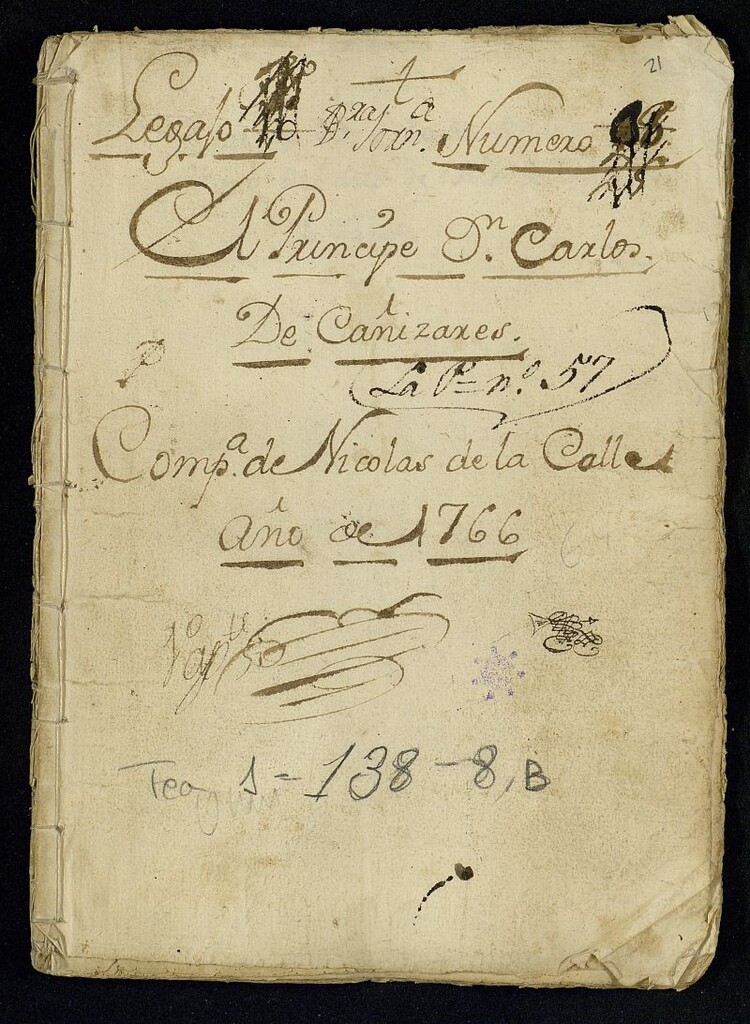 21
Legajo Numero
El Principe Dn. Carlos.
De Cañizares.
La P= nº. 57
Compª. de Nicolas de la Calle
Año de 1766
Tea 1-138-8, B